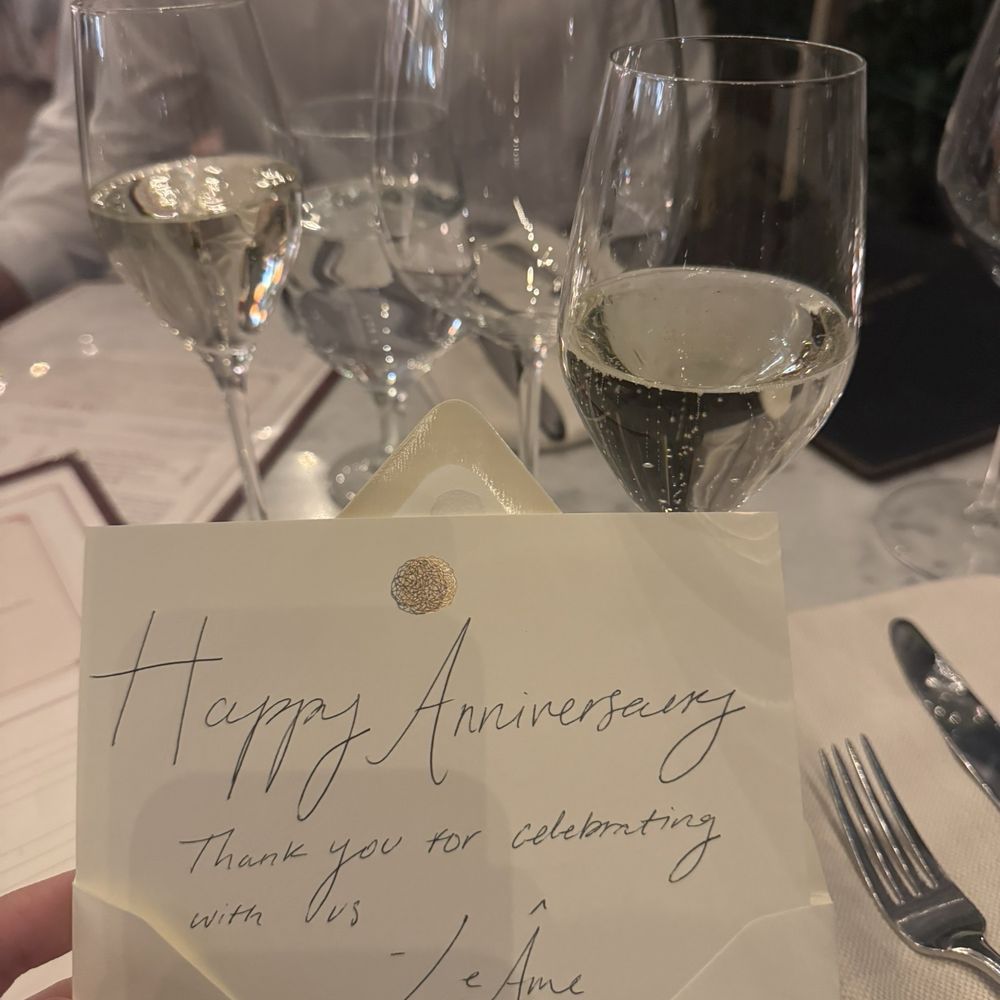 Happy Anniversary
Thank you for celebrating
with us
- Le Âme